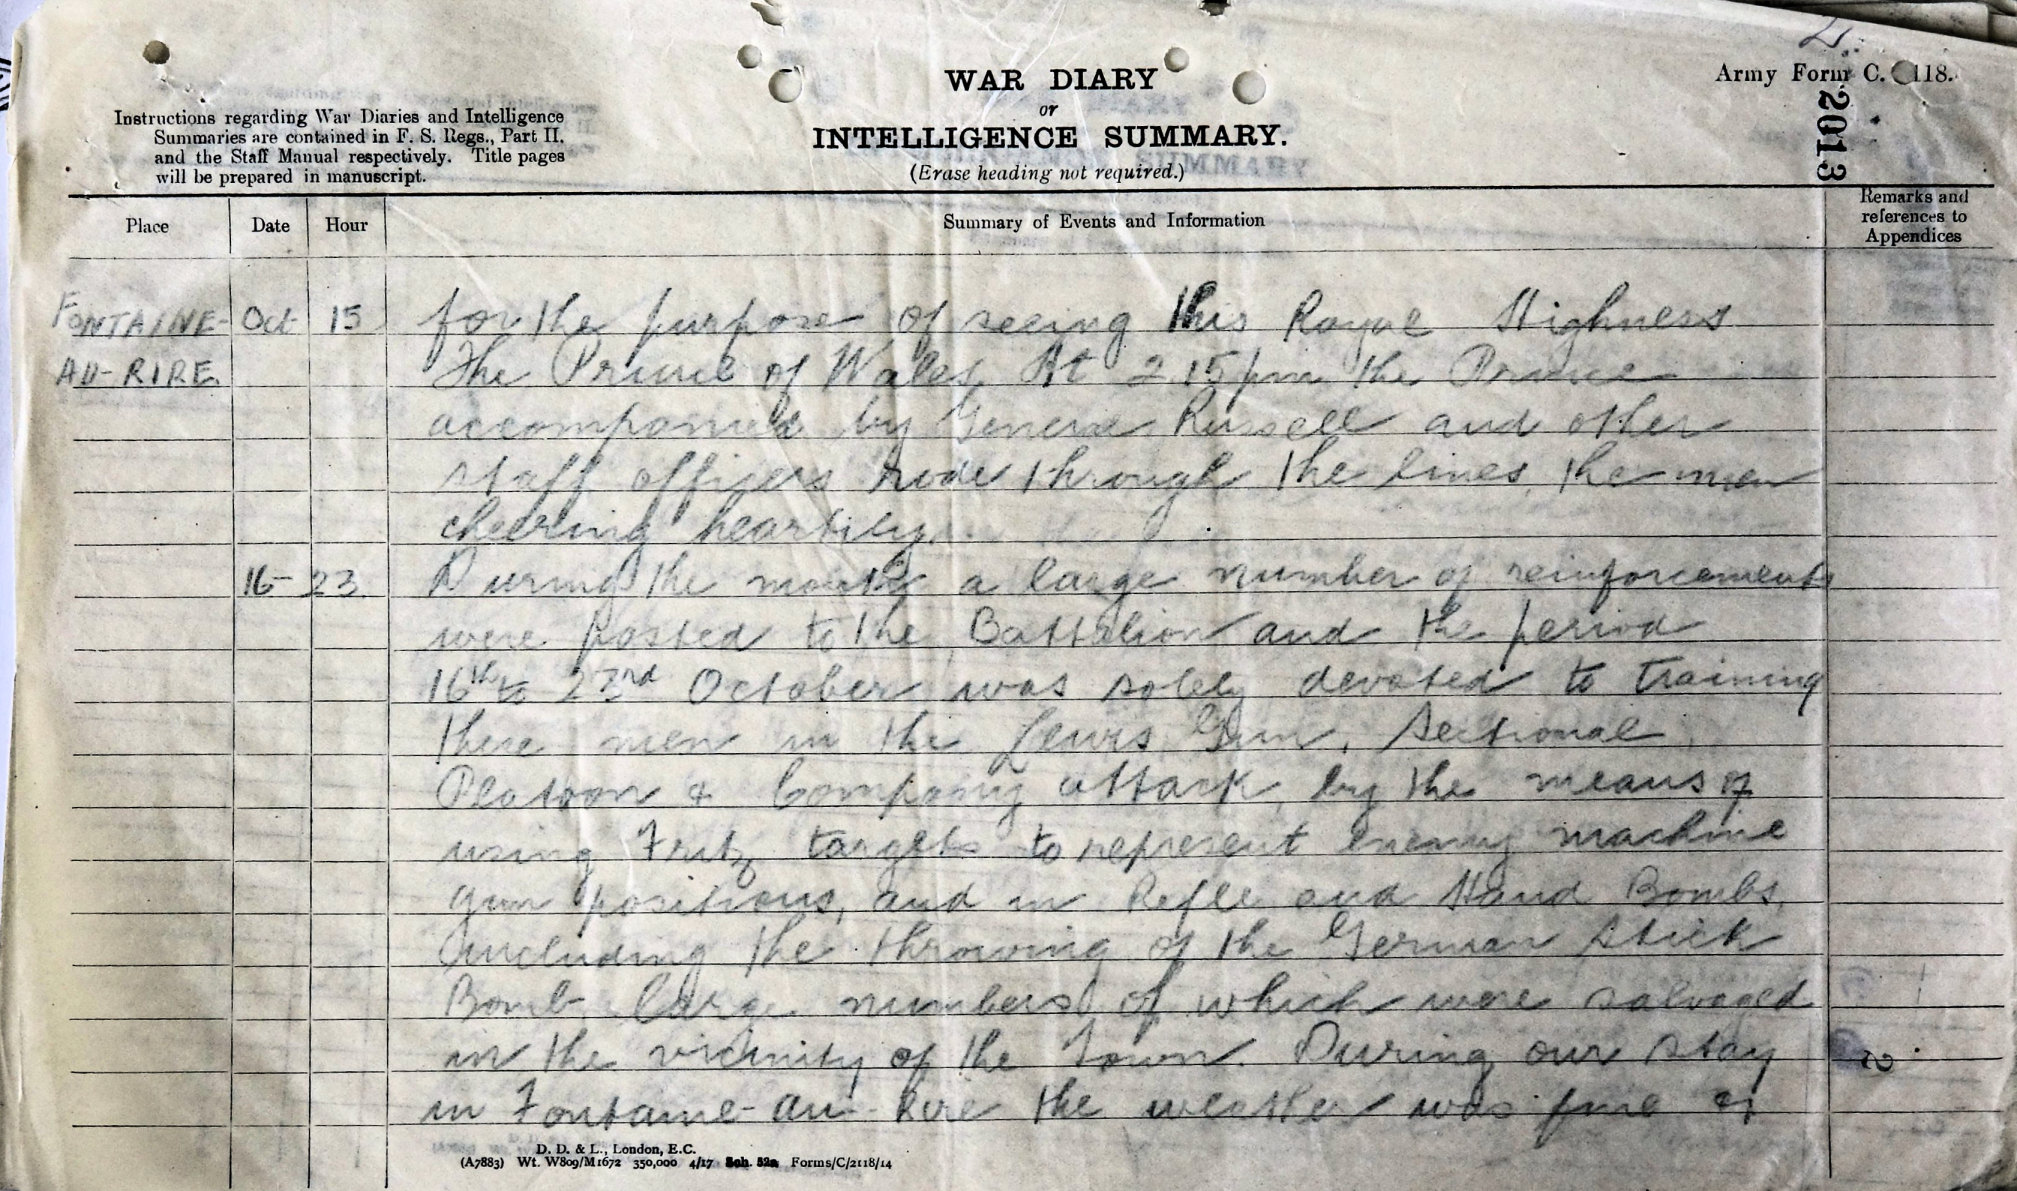 2
WAR DIARY
or
INTELLIGENCE SUMMARY.
(Erase heading not required.)
Army Form C. 2118.
2013
Instructions regarding War Diaries and Intelligence
Summaries are contained in F. S. Regs., Part II.
and the Staff Manual respectively. Title pages
will be prepared in manuscript.
Place Date Hour Summary of Events and Information Remarks and references to Appendices
FONTAINE- Oct 15 for the purpose of seeing His Royal Highness
AU-RIRE The Prince of Wales. At 2.15 pm the Prince
accompanied by General Russell and other
staff officers rode through the lines, the men
cheering heartily.
16-23. During the month a large number of reinforcements
were posted to the Battalion and the period
16th to 23rd October was solely devoted to training
these men in the Lewis Gun, Sectional
Platoon & Company attack, by the means of
using Fritz targets to represent enemy machine
gun positions, and in Rifle and Hand Bombs,
including the throwing of the German Stick
Bomb large numbers of which were salvaged
in the vicinity of the Town. During our stay
in Fontaine-au-Rire the weather was fine
D. D. & L., London, E.C.
(A7883) Wt. W809/M1672 350,000 4/17 Sch. 52a Forms/C/2118/14